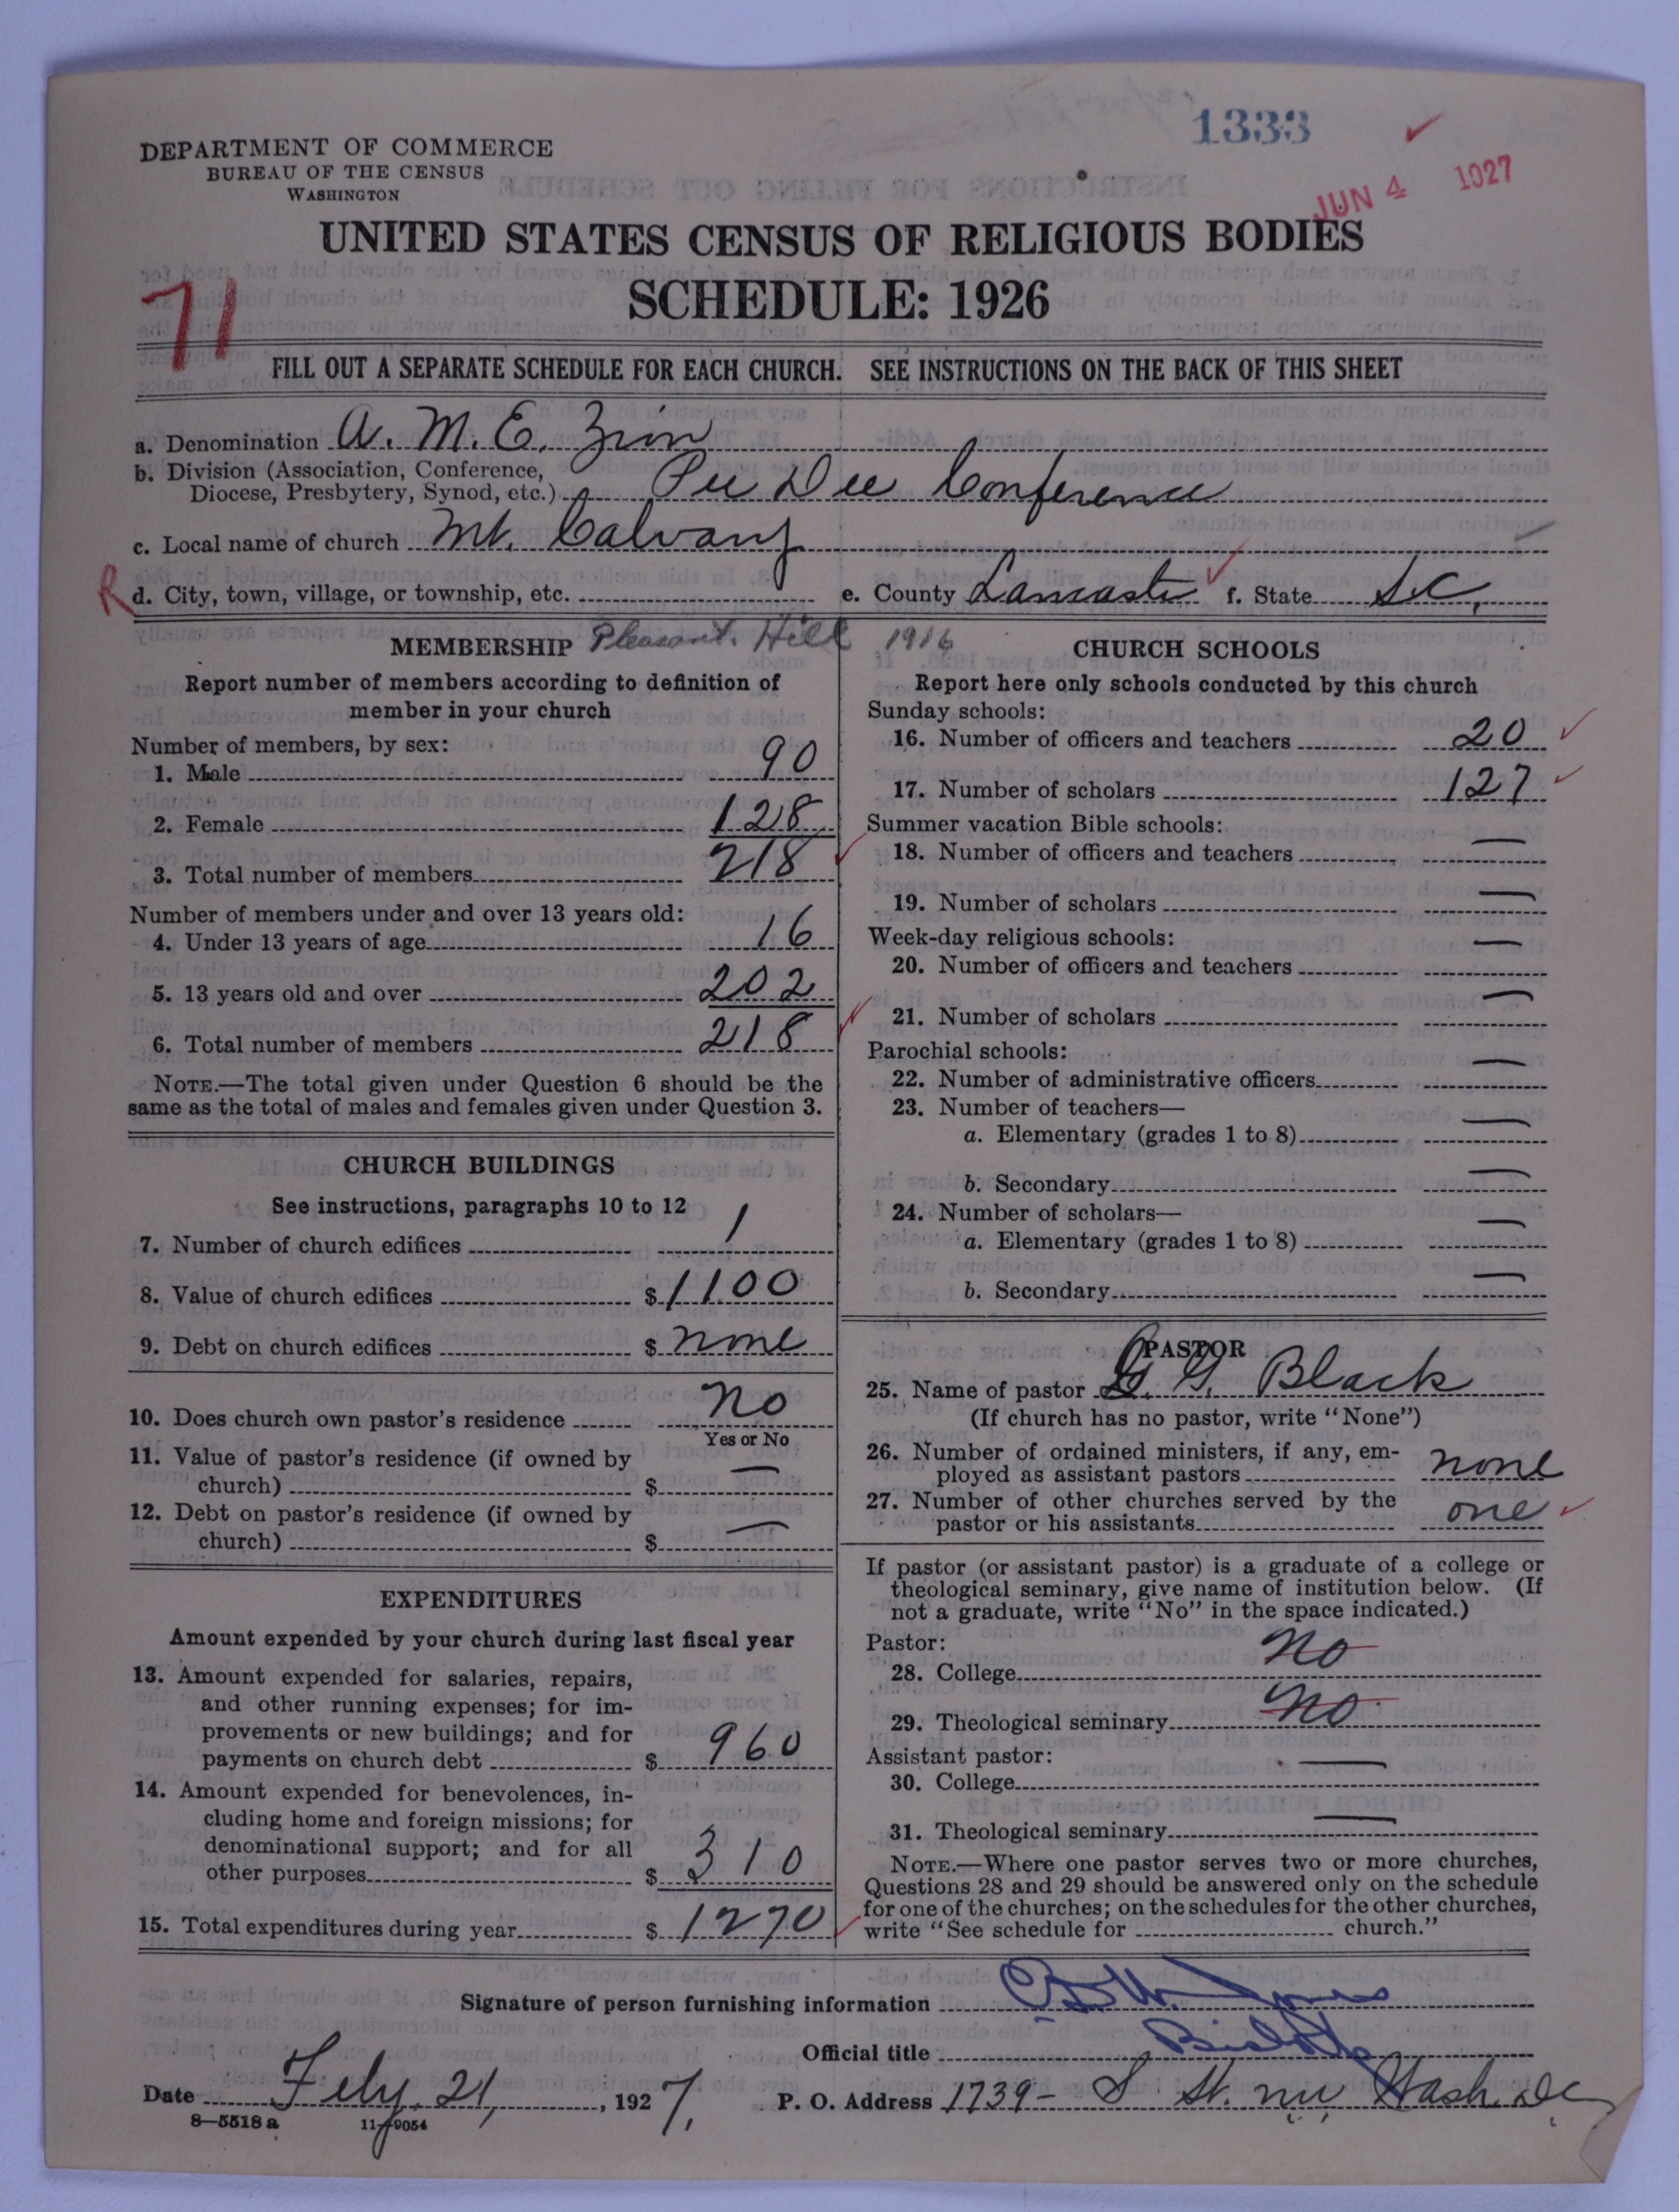 1333
JUN 4 1927
DEPARTMENT OF COMMERCE
BUREAU OF THE CENSUS
WASHINGTON
UNITED STATES CENSUS OF RELIGIOUS BODIES
SCHEDULE: 1926
71
FILL OUT A SEPARATE SCHEDULE FOR EACH CHURCH. SEE INSTRUCTIONS ON THE BACK OF THIS SHEET
a. Denomination A. M. E. Zion
b. Division (Association, Conference,
Diocese, Presbytery, Synod, etc.) Pee Dee Conference
c. Local name of church Mt. Calvary
R d. City, town, village, or township, etc. e. County Lancaster f. State S.C.
MEMBERSHIP Pleasant Hill 1916
Report number of members according to definition of
member in your church
Number of members, by sex:
1. Male 90
2. Female 128
3. Total number of members 218
Number of members under and over 13 years old:
4. Under 13 years of age 16
5. 13 years old and over 202
6. Total number of members 218
NOTE.—The total given under Question 6 should be the
same as the total of males and females given under Question 3.
CHURCH BUILDINGS
See instructions, paragraphs 10 to 12
7. Number of church edifices 1
8. Value of church edifices $ 1100
9. Debt on church edifices $ none
10. Does church own pastor's residence No
Yes or No
11. Value of pastor's residence (if owned by
church) $ —
12. Debt on pastor's residence (if owned by
church) $ —
EXPENDITURES
Amount expended by your church during last fiscal year
13. Amount expended for salaries, repairs,
and other running expenses; for im-
provements or new buildings; and for
payments on church debt $ 960
14. Amount expended for benevolences, in-
cluding home and foreign missions; for
denominational support; and for all
other purposes $ 310
15. Total expenditures during year $ 1270
CHURCH SCHOOLS
Report here only schools conducted by this church
Sunday schools:
16. Number of officers and teachers 20
17. Number of scholars 127
Summer vacation Bible schools:
18. Number of officers and teachers —
19. Number of scholars —
Week-day religious schools:
20. Number of officers and teachers —
21. Number of scholars —
Parochial schools:
22. Number of administrative officers —
23. Number of teachers—
a. Elementary (grades 1 to 8) —
b. Secondary —
24. Number of scholars—
a. Elementary (grades 1 to 8) —
b. Secondary —
PASTOR
25. Name of pastor G. Black
(If church has no pastor, write "None")
26. Number of ordained ministers, if any, em-
ployed as assistant pastors none
27. Number of other churches served by the
pastor or his assistants one
If pastor (or assistant pastor) is a graduate of a college or
theological seminary, give name of institution below. (If
not a graduate, write "No" in the space indicated.)
Pastor:
28. College No
29. Theological seminary No
Assistant pastor:
30. College —
31. Theological seminary —
NOTE.—Where one pastor serves two or more churches,
Questions 28 and 29 should be answered only on the schedule
for one of the churches; on the schedules for the other churches,
write "See schedule for church."
Signature of person furnishing information Jones
Official title Bishop
Date Feby. 21, 1927, P. O. Address 1739- S St. NW Wash. DC
8—5518 a 11—9054